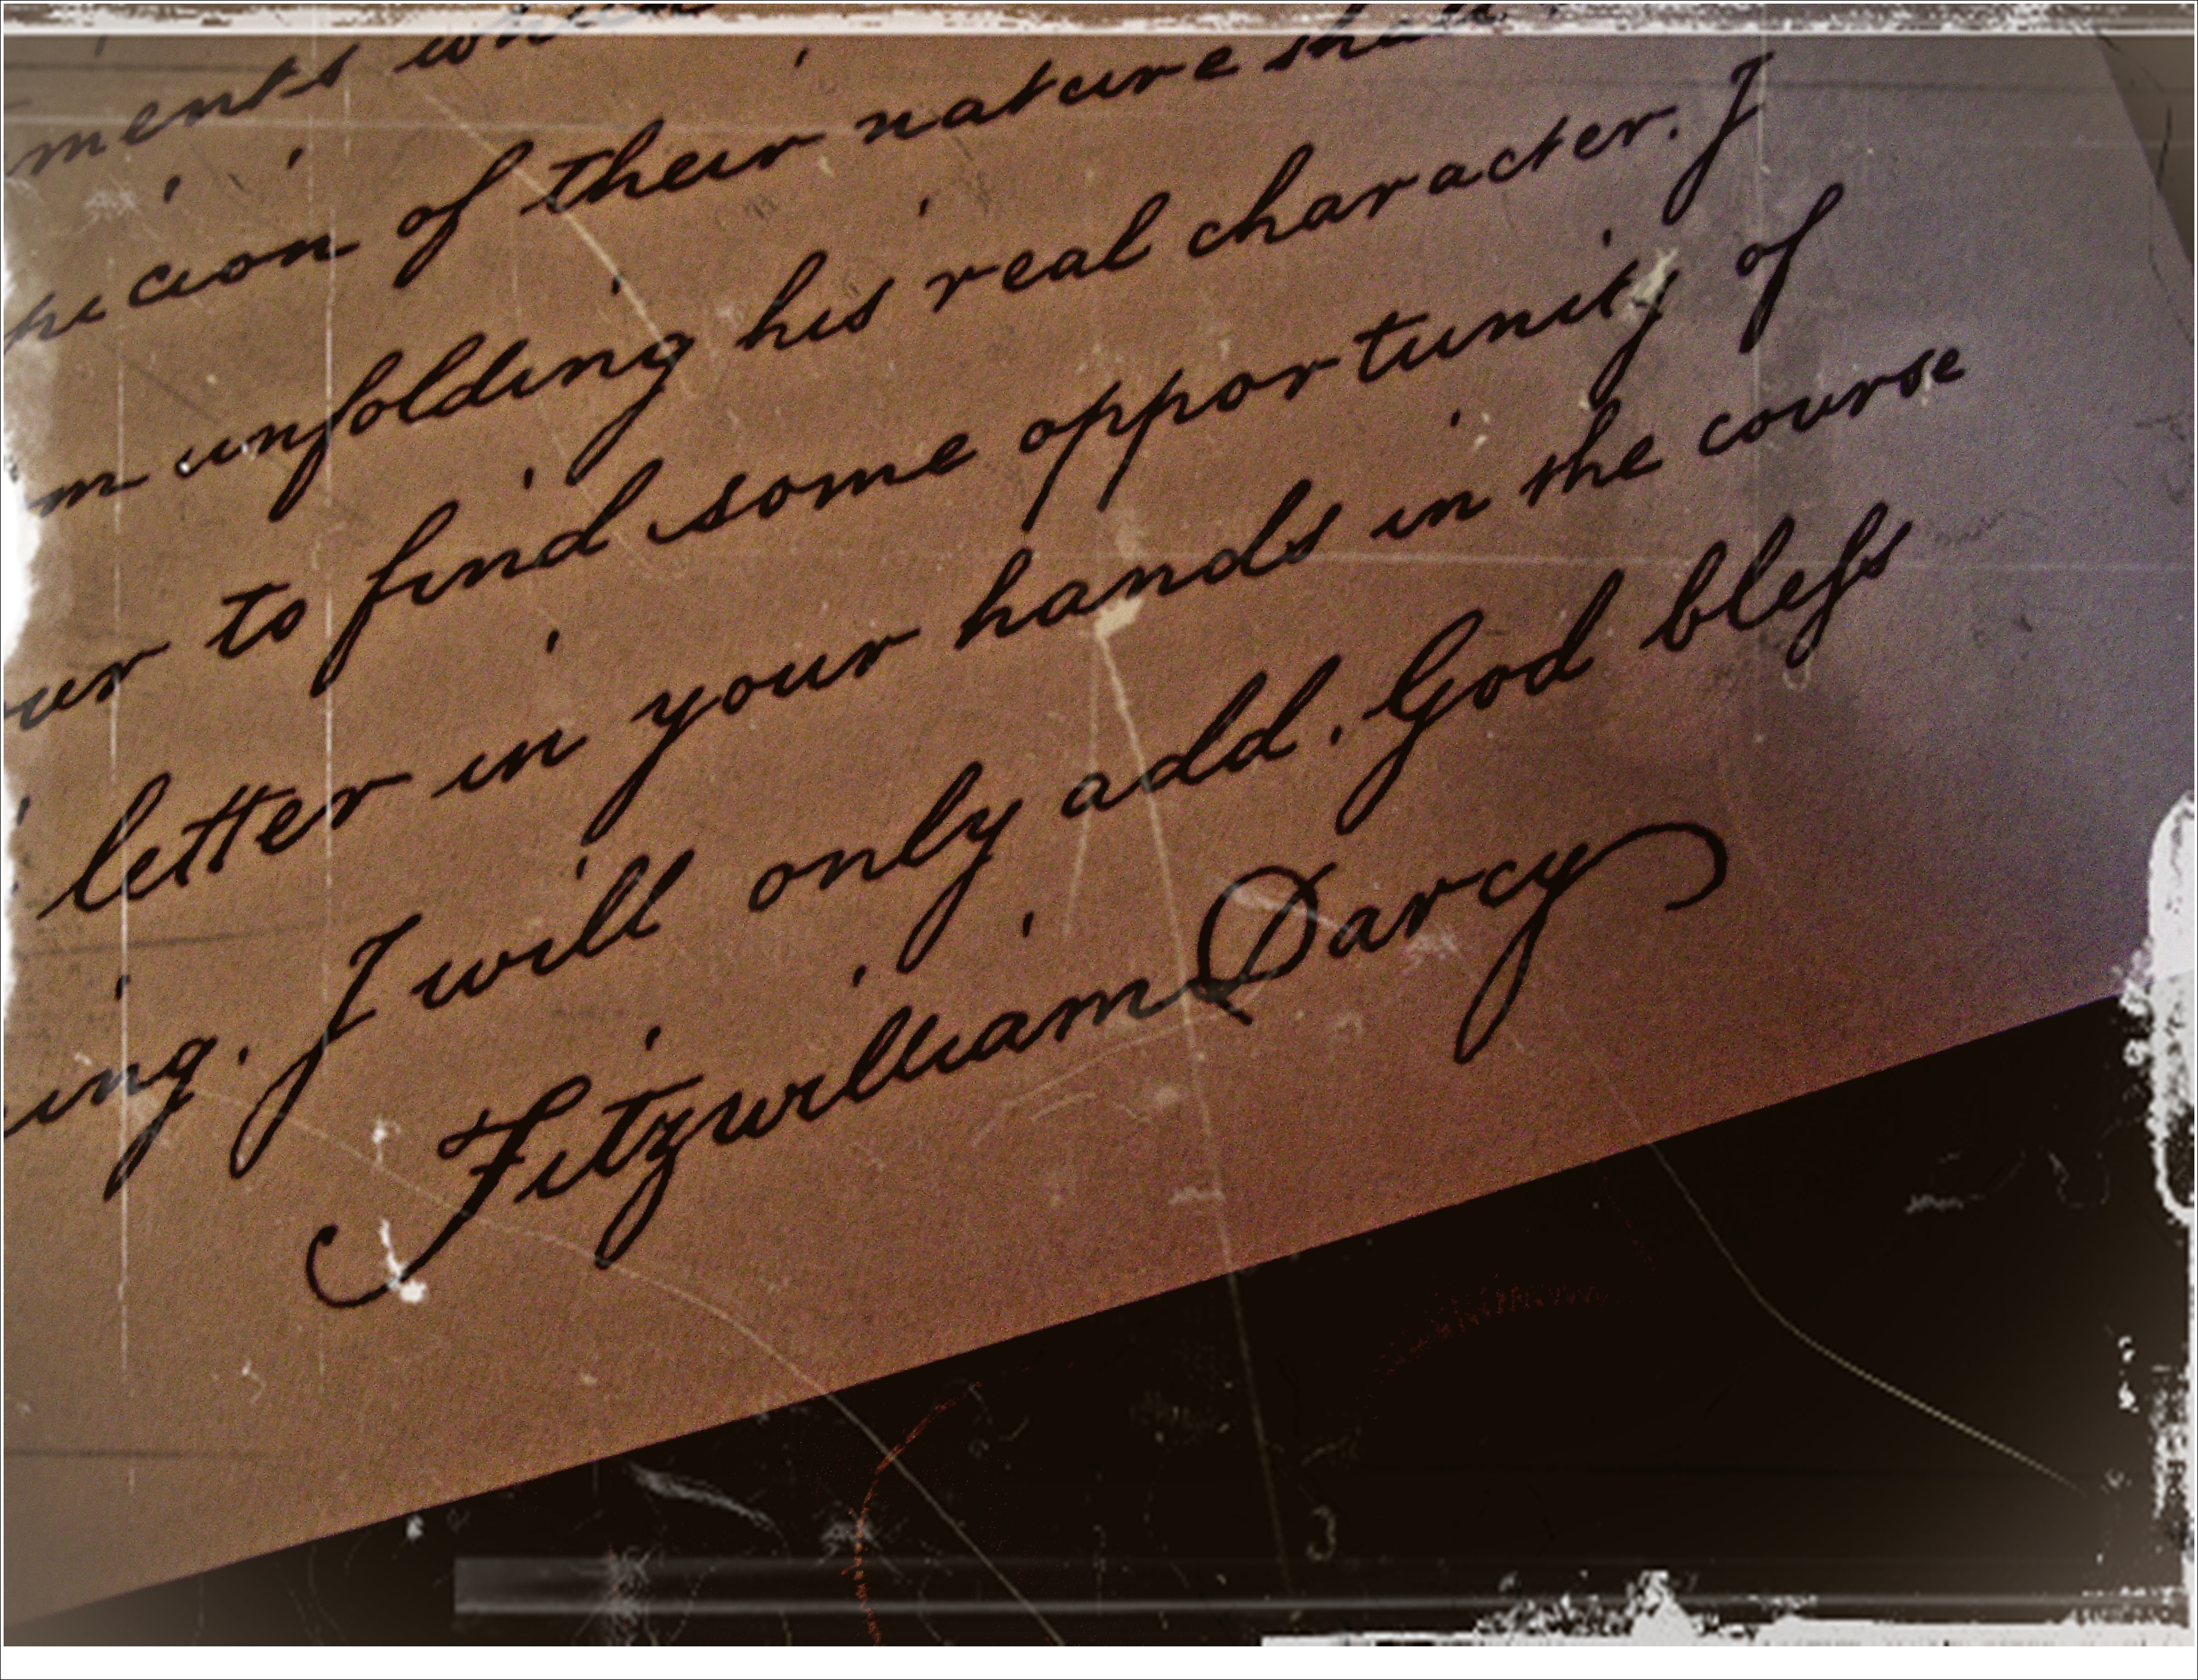 ments which
picion of their nature shall
m unfolding his real character. I
our to find some opportunity of
letter in your hands in the course
ing. I will only add. God bleſs
Fitzwilliam Darcy